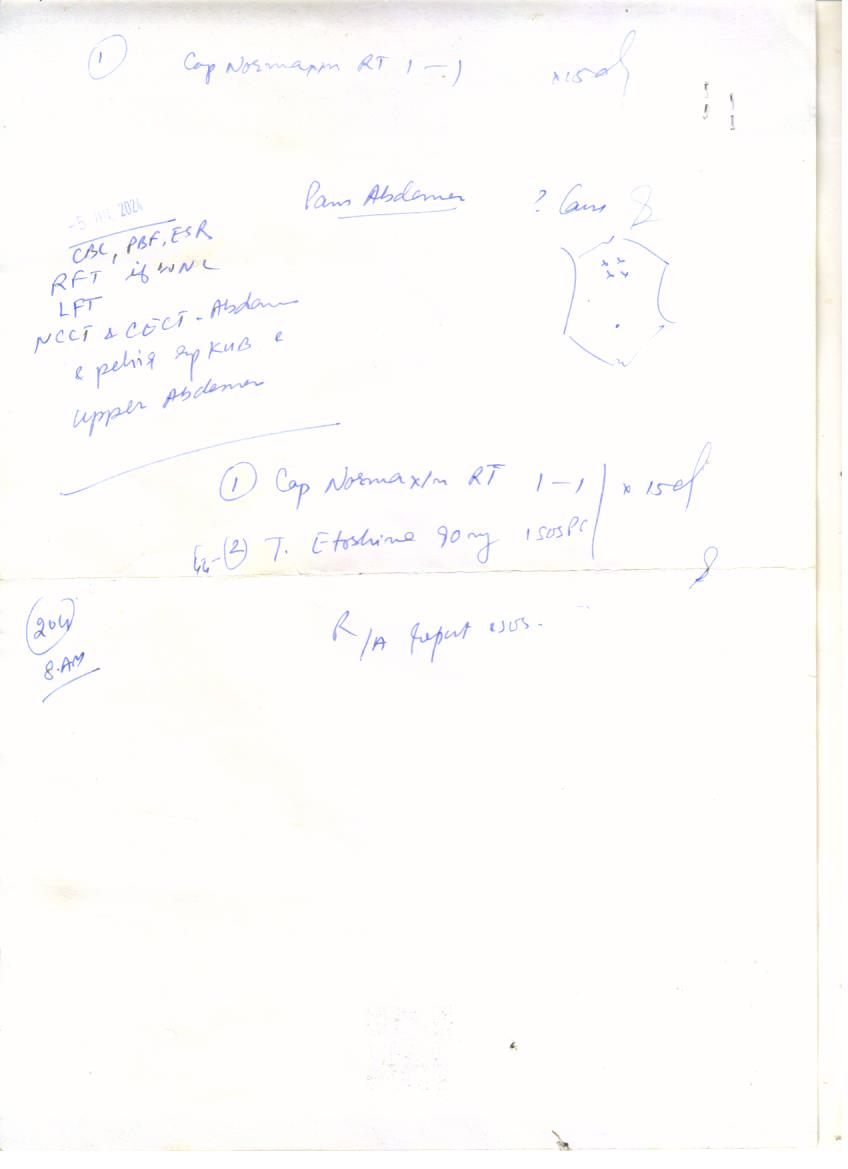 1 Cap Normaxin RT 1 – 1 x 15 d
Pain Abdomen ? Cause
-5 JUL 2024
CBC, PBF, ESR
RFT if WNL
LFT
NCCT & CECT - Abdomen
& pelvis KUB
upper Abdomen
1 Cap Normaxin RT 1 – 1 x 15 d
2 T. Etoshine 90 mg 1 SOS PC
204
8. AM
R/A Report SOS.